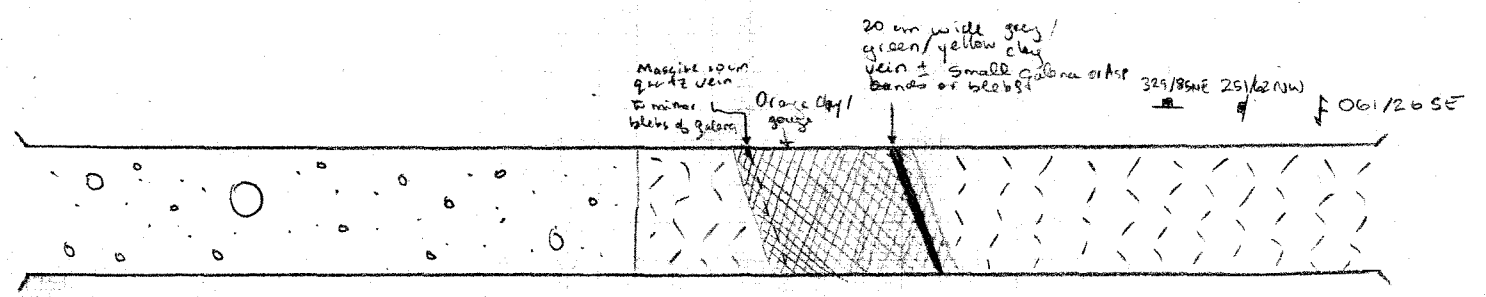 Massive 10cm
quartz vein
minor
blebs of galena
Orange clay/
gouge
20 cm wide grey/
green/yellow clay
vein ± small galena or Asp
bands or blebs
325/85NE 251/62NW
061/26 SE